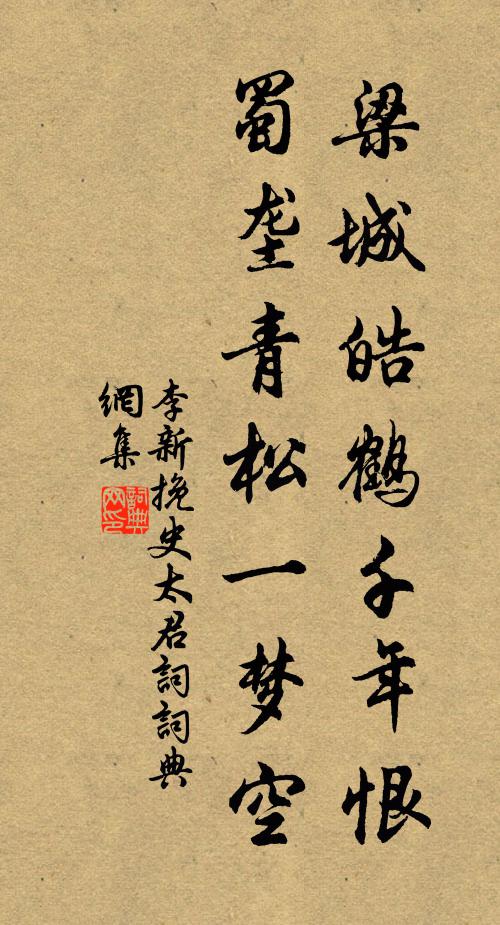 梁城皓鹤千年恨
蜀垄青松一梦空
李新挽史太君詞詞典
網集
詞典
网印